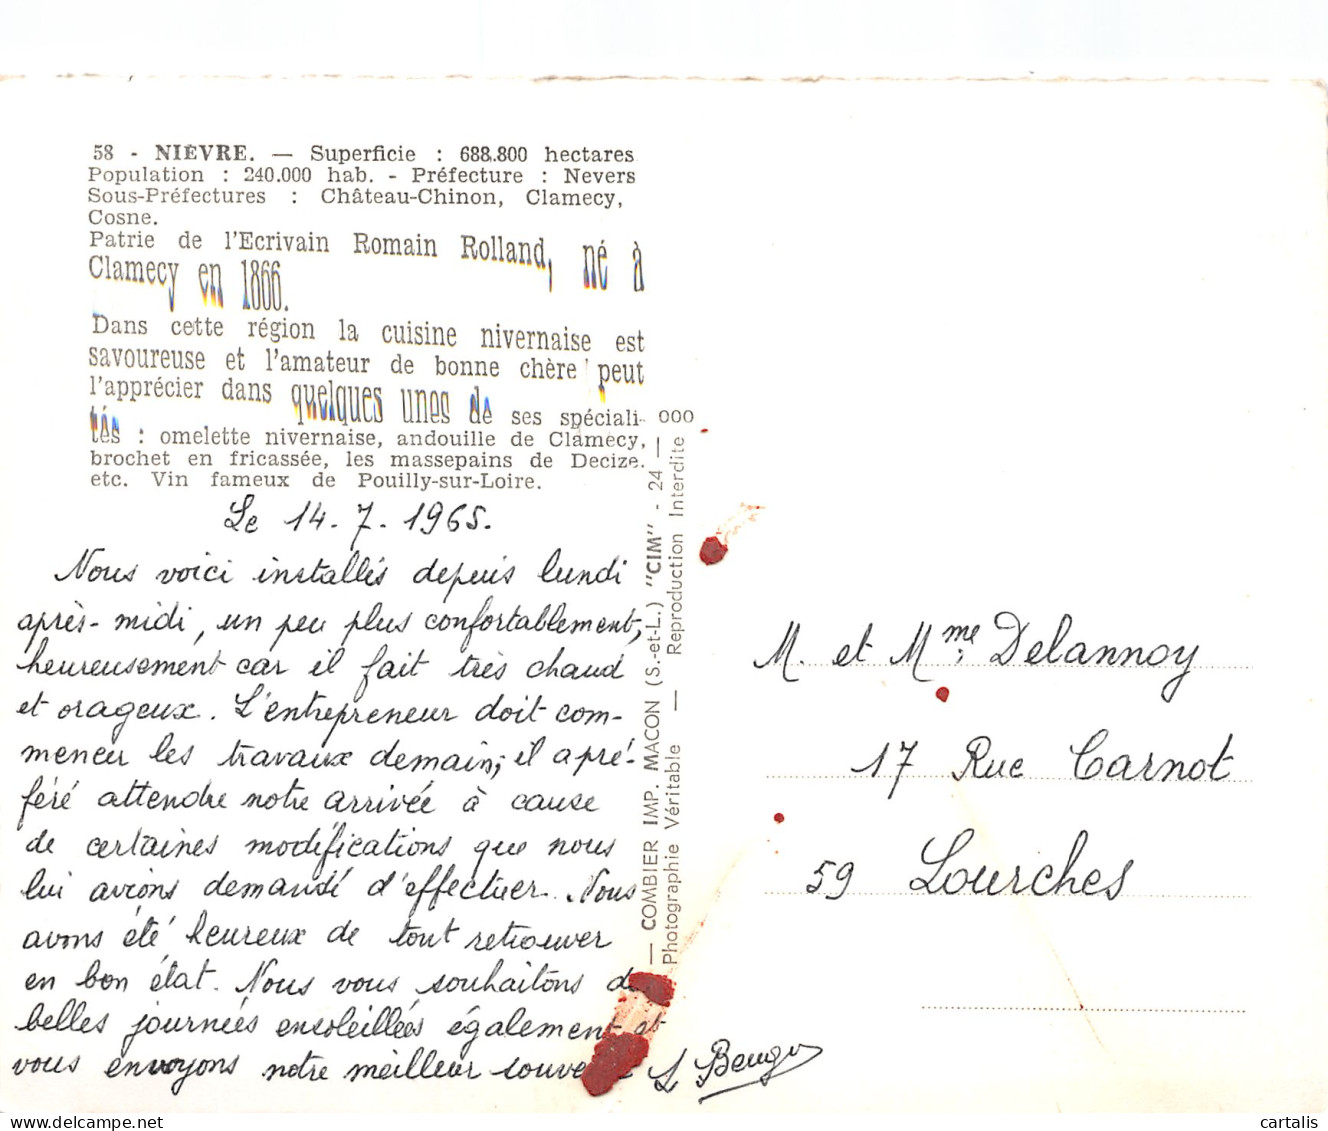 58 - NIÈVRE. — Superficie : 688.800 hectares
Population : 240.000 hab. - Préfecture : Nevers
Sous-Préfectures : Château-Chinon, Clamecy,
Cosne.
Patrie de l'Ecrivain Romain Rolland, né à
Clamecy en 1866.
Dans cette région la cuisine nivernaise est
savoureuse et l'amateur de bonne chère peut
l'apprécier dans quelques unes de ses spéciali-
tés : omelette nivernaise, andouille de Clamecy,
brochet en fricassée, les massepains de Decize.
etc. Vin fameux de Pouilly-sur-Loire.
Le 14-7-1965.
Nous voici installés depuis lundi
après-midi, un peu plus confortablement,
heureusement car il fait très chaud
et orageux. L'entrepreneur doit com-
mencer les travaux demain, il a pré-
féré attendre notre arrivée à cause
de certaines modifications que nous
lui avions demandé d'effectuer. Nous
avons été heureux de tout retrouver
en bon état. Nous vous souhaitons de
belles journées ensoleillées également et
vous envoyons notre meilleur
000
— COMBIER IMP. MACON (S.-et-L.) "CIM" - 24 —
Photographie Véritable — Reproduction Interdite
M. et Mme Delannoy
17 Rue Carnot
59 Lourches
cartalis